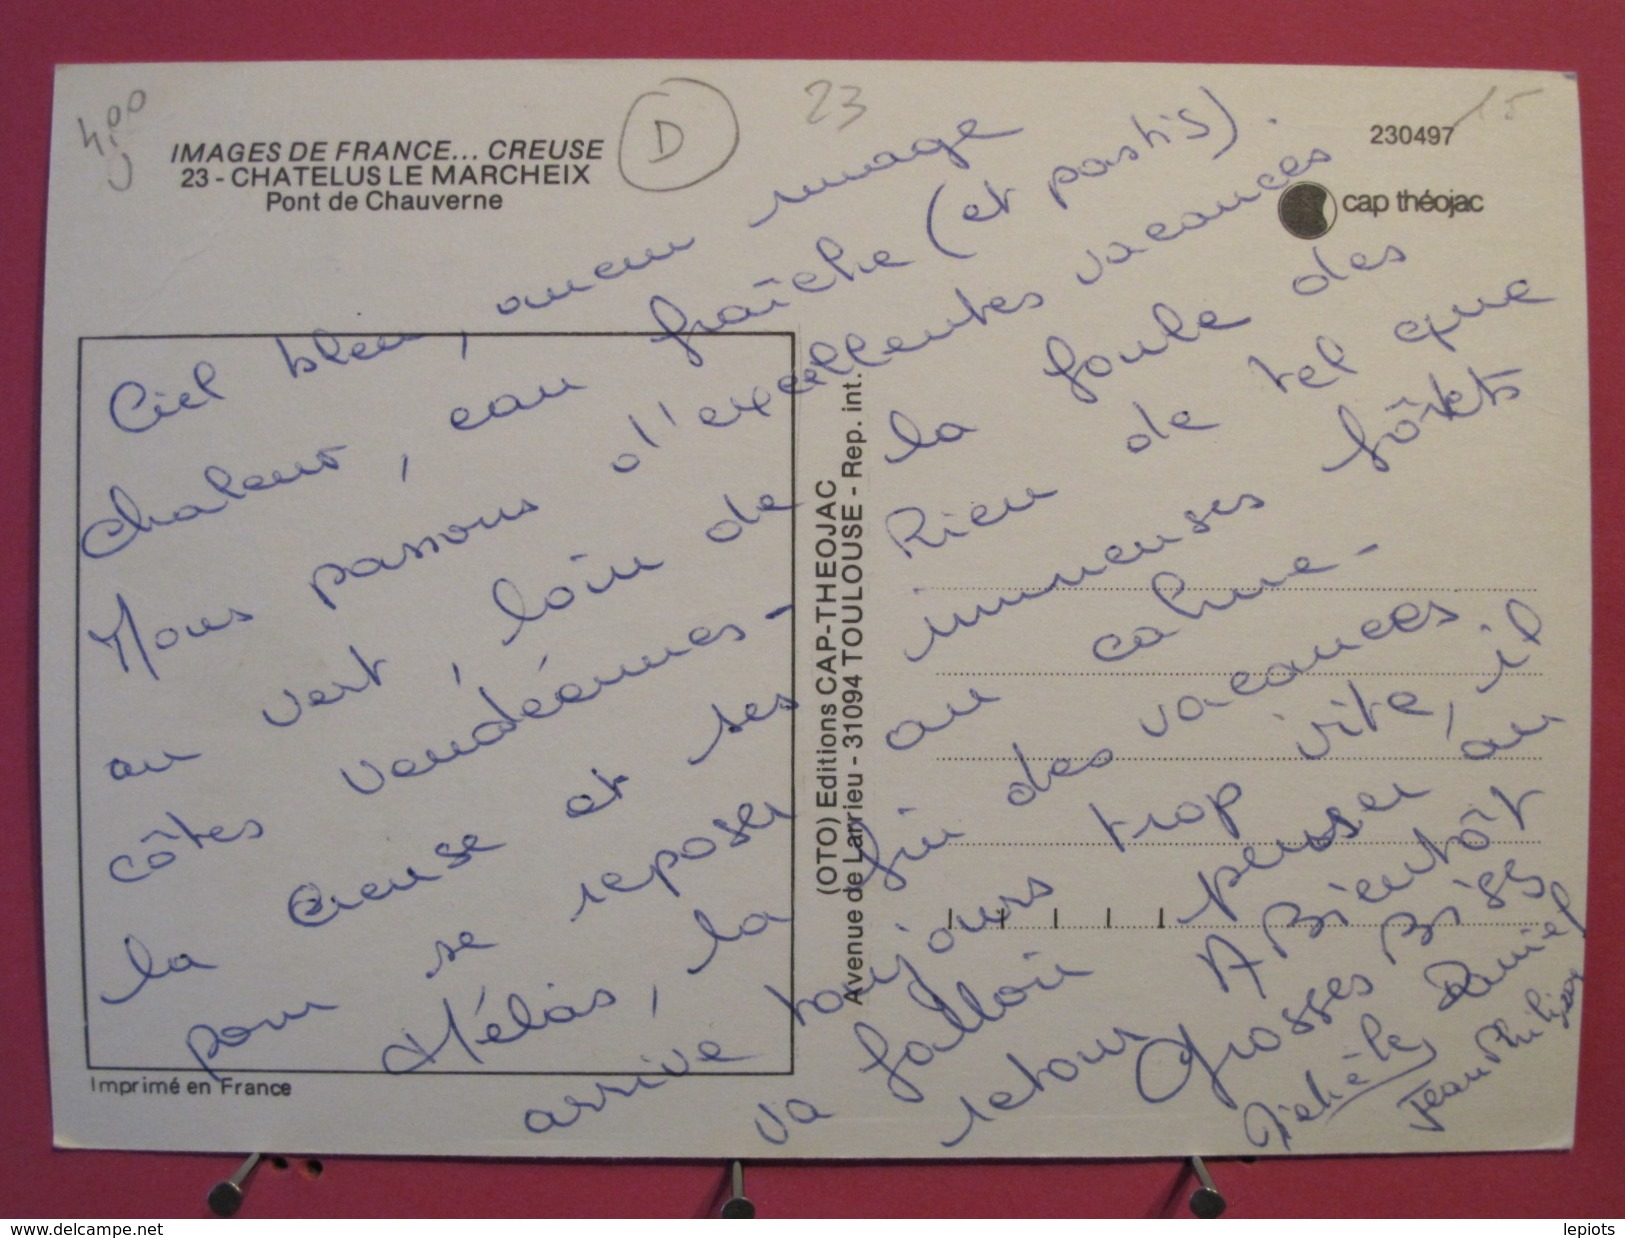 4,00
IMAGES DE FRANCE... CREUSE
23 - CHATELUS LE MARCHEIX
Pont de Chauverne
D
23
15
230497
cap théojac
Ciel bleu, aucun nuage
chaleur, eau fraîche (et pastis).
Nous passons d'excellentes vacances
au vert, loin de la foule des
côtes vendéennes - Rien de tel que
la Creuse et ses immenses fôrets
pour se reposer au calme -
Hélas, la fin des vacances
arrive toujours trop vite, il
va falloir penser au
retour A Bientôt
Grosses Bises
Michèle Daniel
Jean Philippe
(OTO) Editions CAP-THEOJAC
Avenue de Larrieu - 31094 TOULOUSE - Rep. int.
Imprimé en France
www.delcampe.net
lepiots